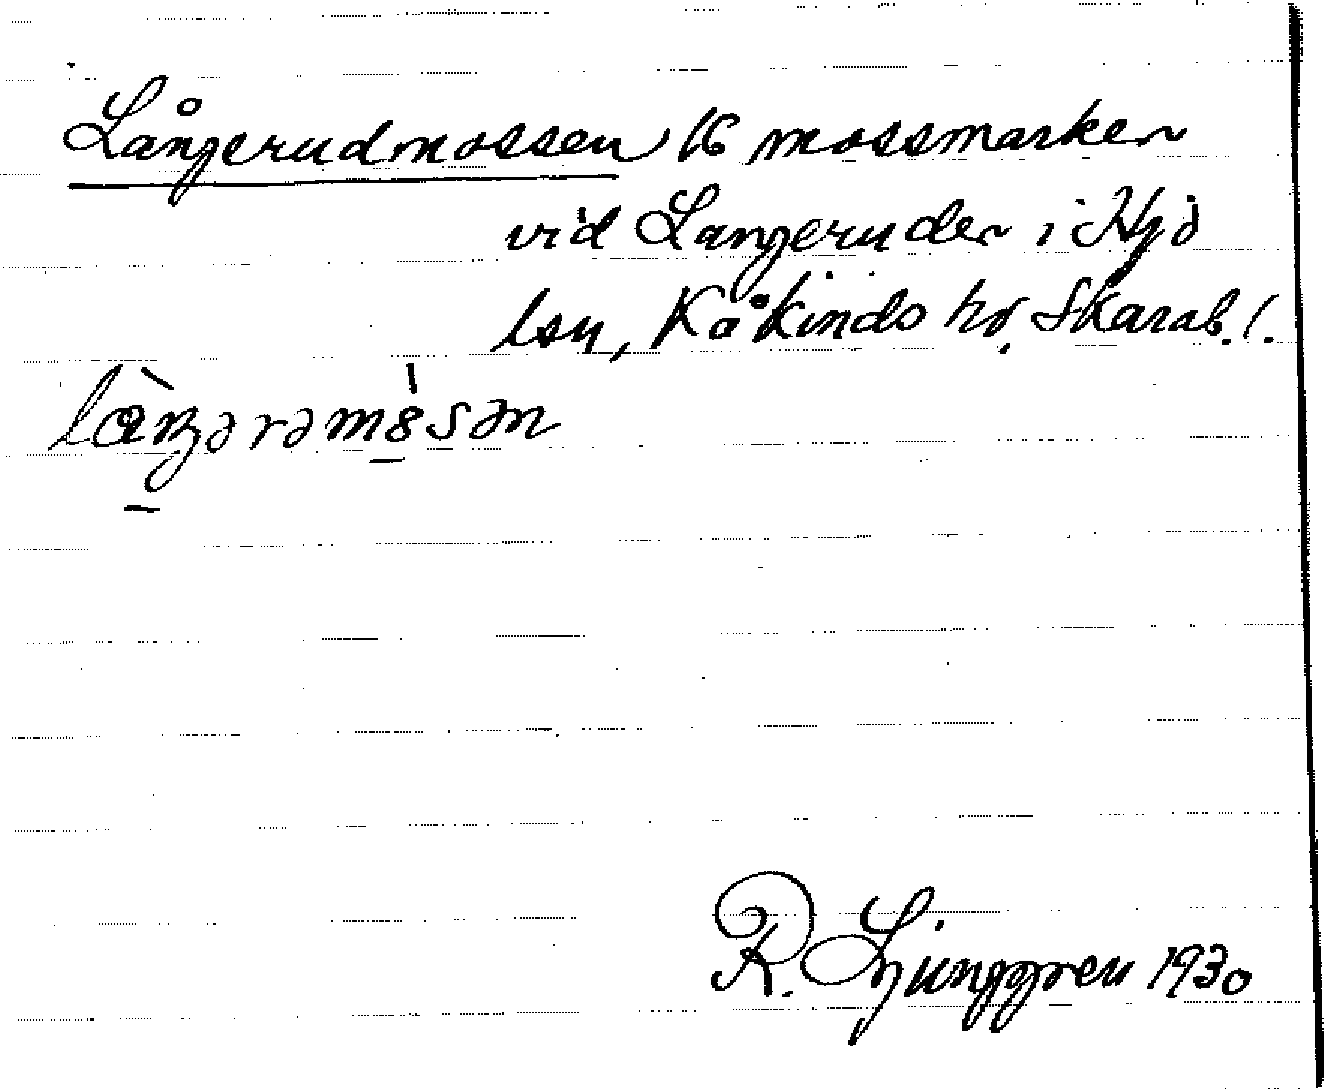 Långerudmossen / mossmarker
vid Langeruder i Hjo
lsn, Kåkinds hd. Skarab. l.
R. Ljunggren 1930